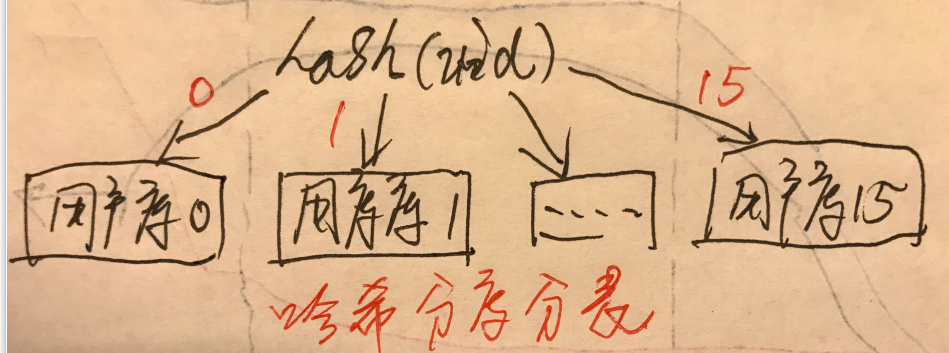 hash(uid)
0 1 15
用户库0 用库库1 ---- 用户库15
哈希分库分表